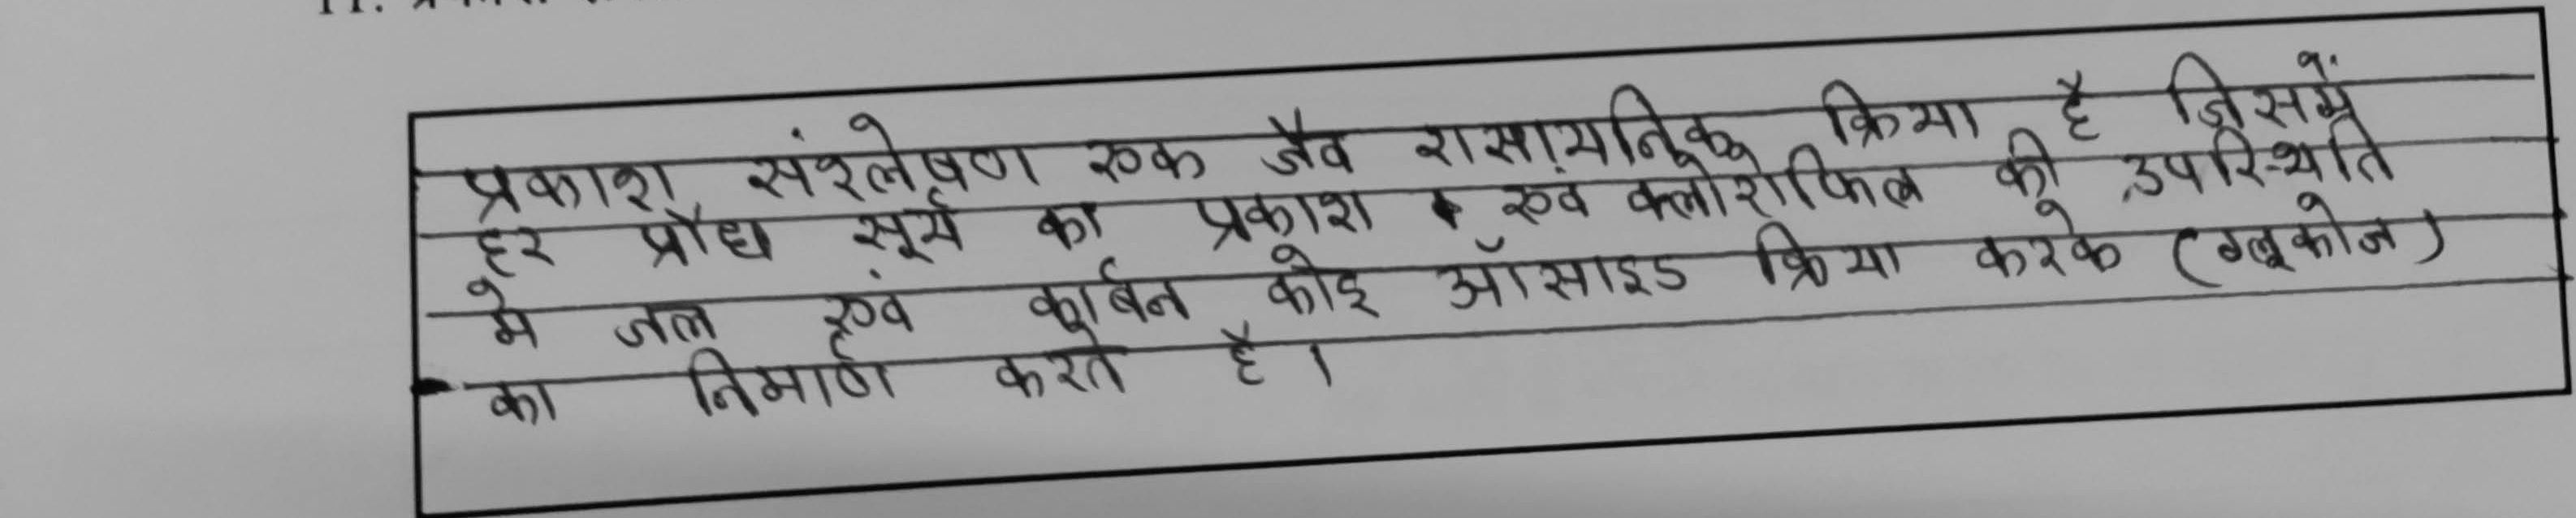 प्रकाश संश्लेषण एक जैव रासायनिक क्रिया है जिसमें
हर प्रौध सूर्य का प्रकाश एवं क्लोरोफिल की उपस्थिति
मे जल एवं कार्बन कोइ ऑसाइड क्रिया करके (ग्लूकोज)
का निमार्ण करते है।